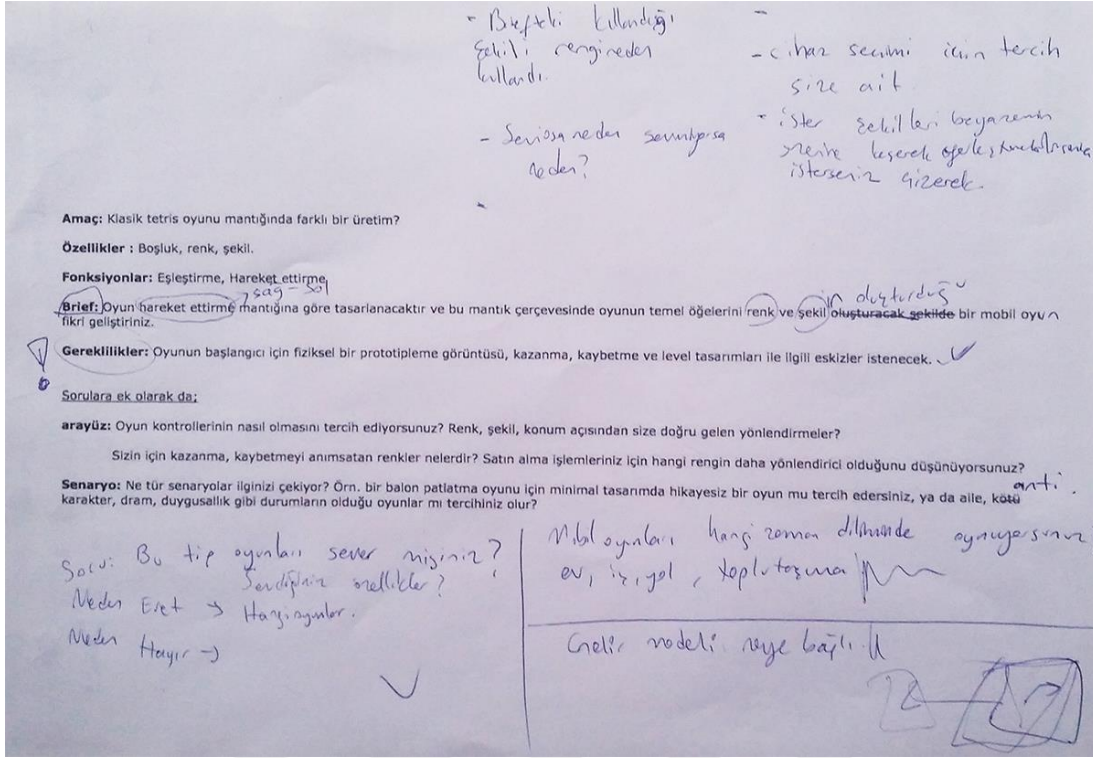 - Brifteki kullandığı
şekili rengi neden
kullandı.
- Seviosa neden sevmiyorsa
neden?
- cihaz seçimi için tercih
size ait
- ister şekilleri beyazemin
keserek
isterseniz çizerek.
Amaç: Klasik tetris oyunu mantığında farklı bir üretim?
Özellikler : Boşluk, renk, şekil.
Fonksiyonlar: Eşleştirme, Hareket ettirme,
sağ - sol
in oluşturduğu
Brief: Oyun hareket ettirme mantığına göre tasarlanacaktır ve bu mantık çerçevesinde oyunun temel öğelerini renk ve şekil oluşturacak şekilde bir mobil oyun
fikri geliştiriniz.
Gereklilikler: Oyunun başlangıcı için fiziksel bir prototipleme görüntüsü, kazanma, kaybetme ve level tasarımları ile ilgili eskizler istenecek.
Sorulara ek olarak da;
arayüz: Oyun kontrollerinin nasıl olmasını tercih ediyorsunuz? Renk, şekil, konum açısından size doğru gelen yönlendirmeler?
Sizin için kazanma, kaybetmeyi anımsatan renkler nelerdir? Satın alma işlemleriniz için hangi rengin daha yönlendirici olduğunu düşünüyorsunuz?
anti
Senaryo: Ne tür senaryolar ilginizi çekiyor? Örn. bir balon patlatma oyunu için minimal tasarımda hikayesiz bir oyun mu tercih edersiniz, ya da aile, kötü
karakter, dram, duygusallık gibi durumların olduğu oyunlar mı tercihiniz olur?
Soru: Bu tip oyunları sever misiniz?
Sevdiğiniz özellikler?
Neden Evet → Hangi oyunlar.
Neden Hayır →
Mobil oyunları hangi zaman diliminde oynuyorsunuz
ev, iş, yol, toplu taşıma
Gelir modeli neye bağlı